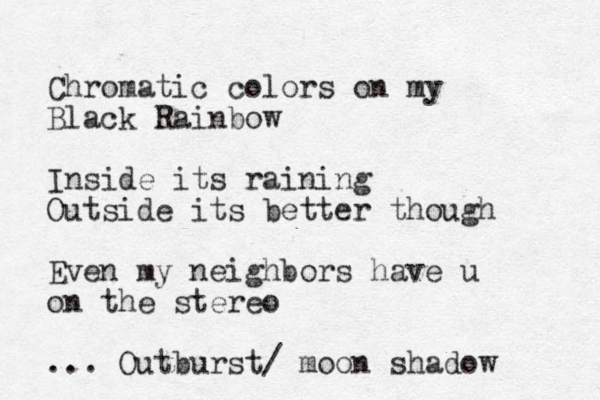 Chromatic colors on my
Black Rainbow
Inside its raining
Outside its better though
Even my neighbors have u
on the stereo
... Outburst/ moon shadow